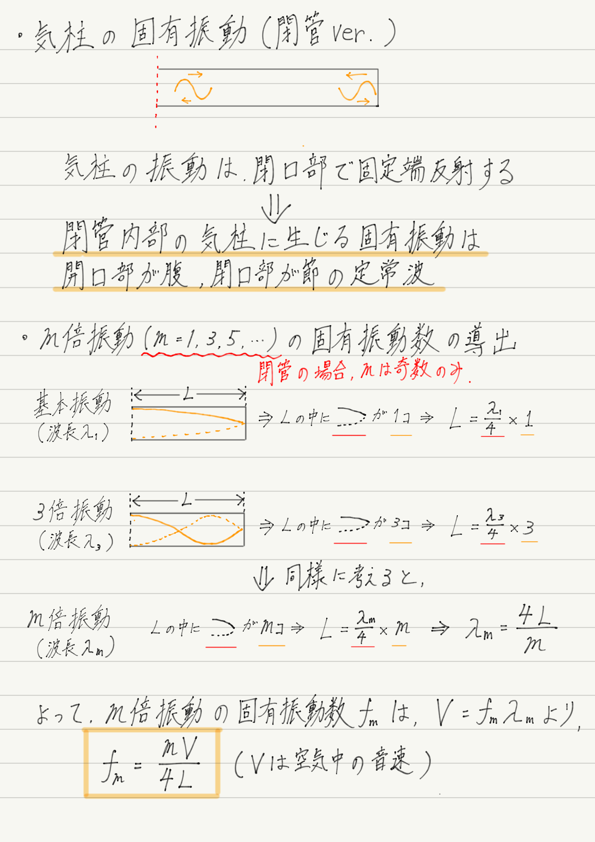 ・気柱の固有振動(閉管ver.)
気柱の振動は、閉口部で固定端反射する
⇓
閉管内部の気柱に生じる固有振動は
開口部が腹,閉口部が節の定常波
・m倍振動(m=1,3,5,…)の固有振動数の導出
閉管の場合,mは奇数のみ.
基本振動 L ⇒ Lの中に が1コ ⇒ L = λ₁/4 × 1
(波長λ₁)
3倍振動 L ⇒ Lの中に が3コ ⇒ L = λ₃/4 × 3
(波長λ₃)
⇓ 同様に考えると,
m倍振動 Lの中に がmコ ⇒ L = λm/4 × m ⇒ λm = 4L/m
(波長λm)
よって、m倍振動の固有振動数fmは, V = fmλmより,
fm = mV/4L (Vは空気中の音速)